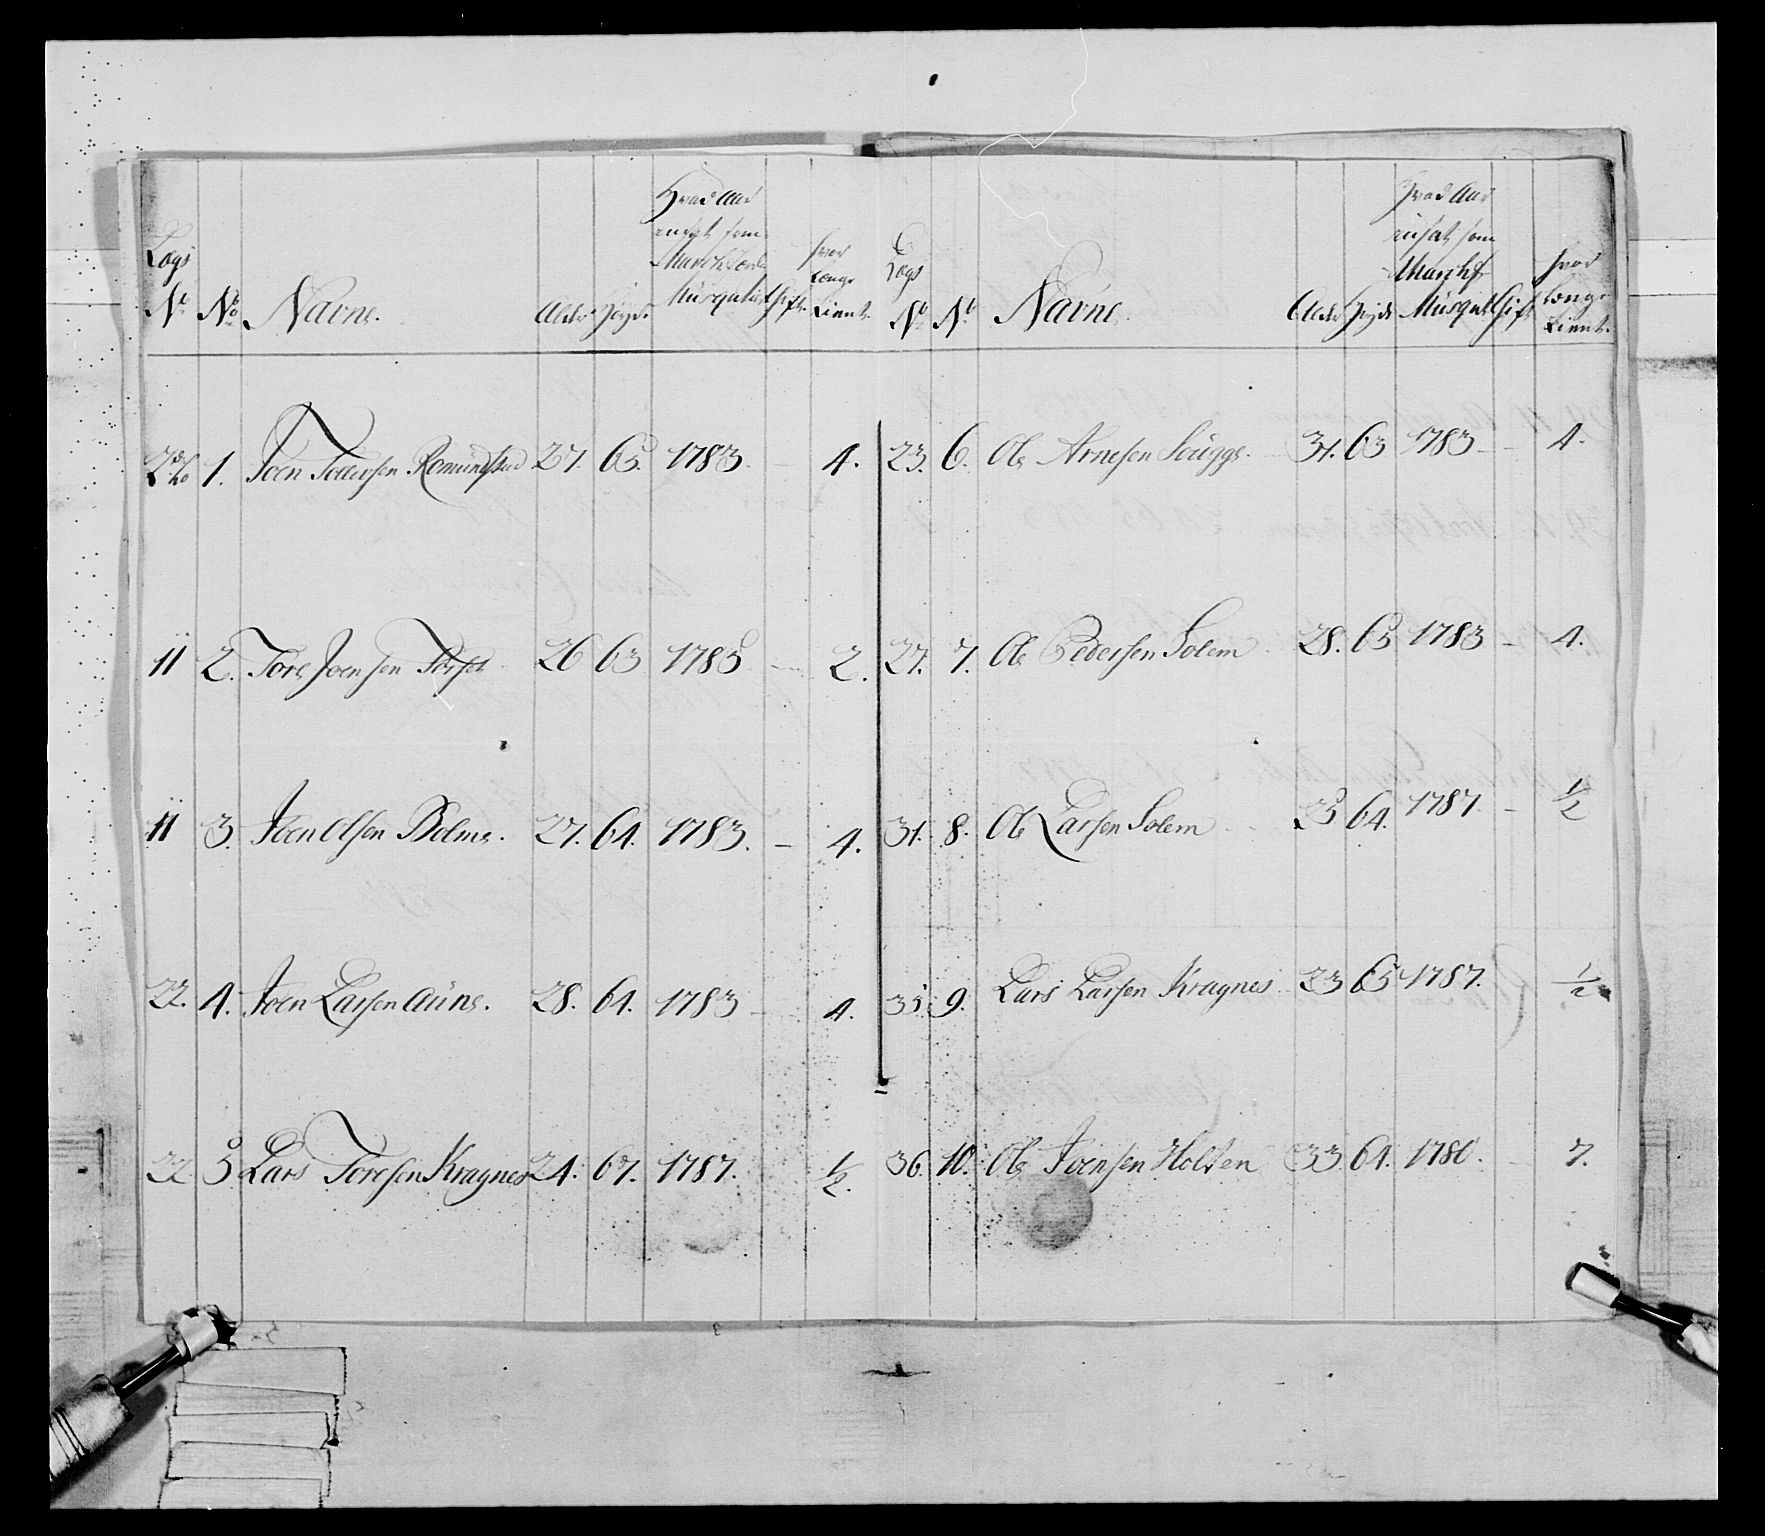 Lægs No No Navne. Alder Høyde Hvad Aar ensat som March Land Musquet Gift. hvor Længe tient.
2 1. Joen Tollefsen Romundstad 27. 65. 1783. – 4.
11 2. Tore Joensen Torset 26 63 1785 – 2.
11 3. Joen Olsen Bolme. 27. 64. 1783. – 4.
22. 4. Joen Larsen Aune. 28. 64. 1783 – 4.
22 5 Lars Toresen Kragnes 24. 67. 1787. ½.
Lægs No No Navne. Alder Høyde Hvad Aar ensat som March Musquet Gift hvor Længe tient.
23. 6. Ole Arnesen 31. 63 1783 – 4.
27. 7. Ole Pedersen Solem 28. 65 1783 – 4.
31. 8. Ole Larsen Solem 25 64. 1787 – ½
35. 9. Lars Larsen Kragnes 23 65 1787. ½
36. 10. Ole Joensen Holten 33. 64. 1780. 7.